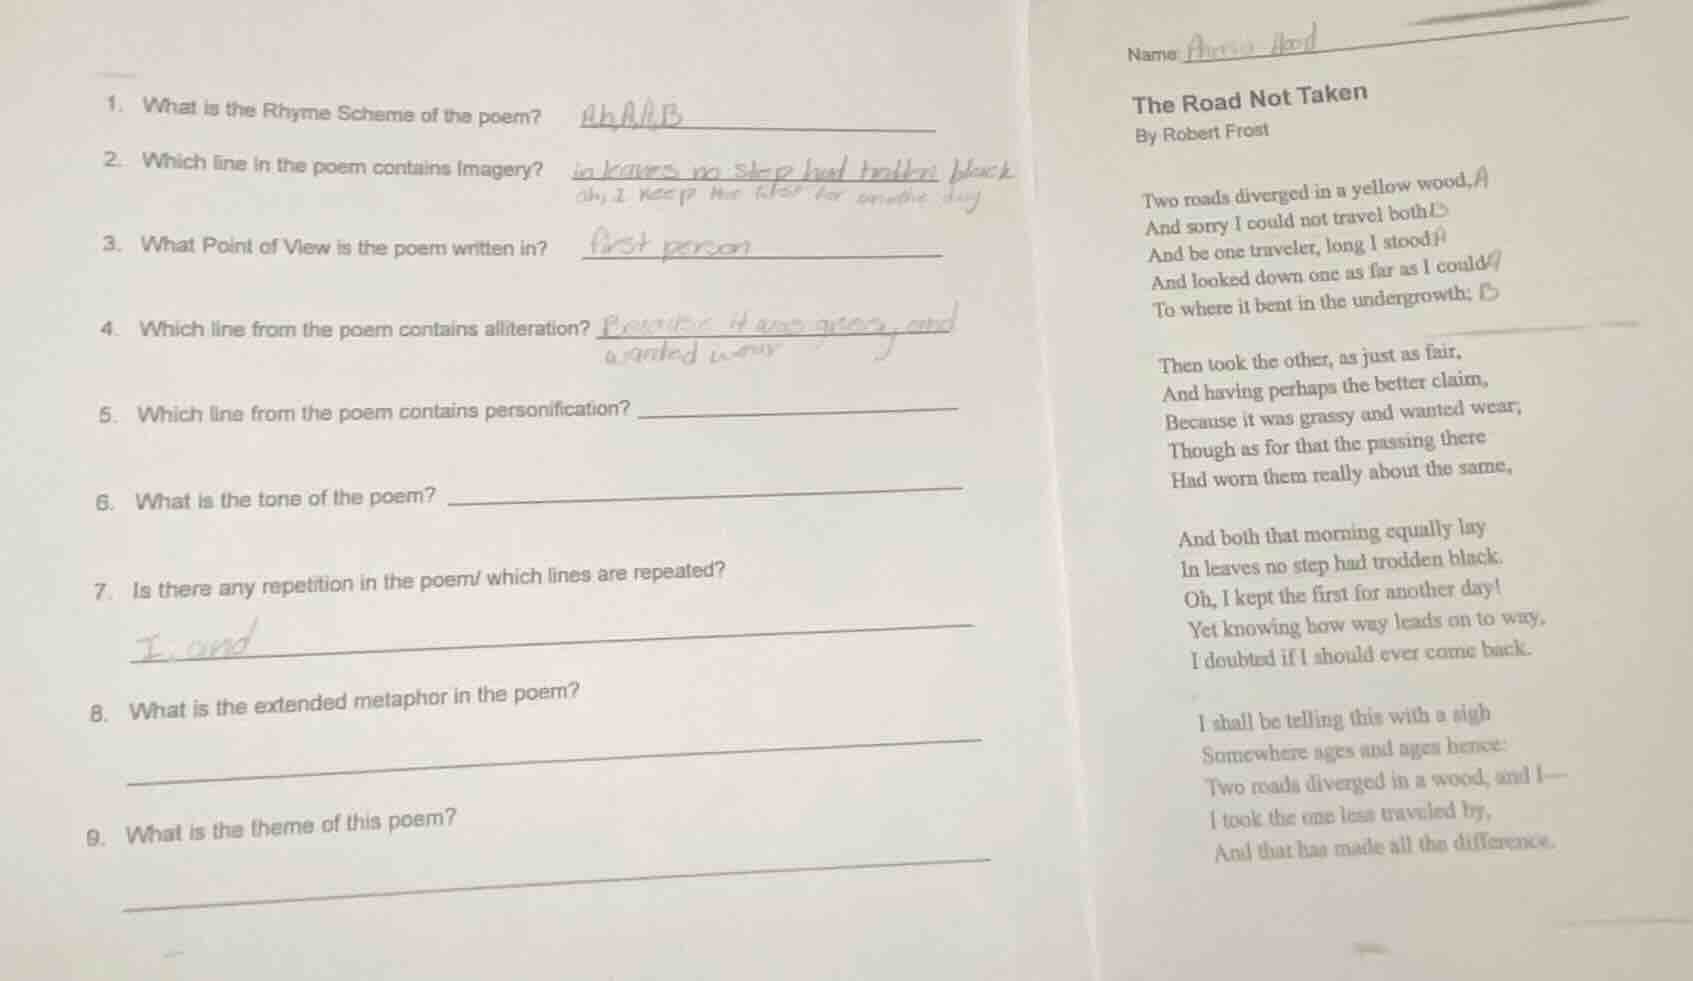 1. What is the Rhyme Scheme of the poem? AbAAB
2. Which line in the poem contains Imagery? in leaves no step had trodden black
oh, I keep the first for another day
3. What Point of View is the poem written in? first person
4. Which line from the poem contains alliteration? Because it was grassy, and
wanted wear
5. Which line from the poem contains personification?
6. What is the tone of the poem?
7. Is there any repetition in the poem/ which lines are repeated?
I, and
8. What is the extended metaphor in the poem?
9. What is the theme of this poem?
Name: Hood
The Road Not Taken
By Robert Frost
Two roads diverged in a yellow wood, A
And sorry I could not travel both B
And be one traveler, long I stood A
And looked down one as far as I could A
To where it bent in the undergrowth; B
Then took the other, as just as fair,
And having perhaps the better claim,
Because it was grassy and wanted wear;
Though as for that the passing there
Had worn them really about the same,
And both that morning equally lay
In leaves no step had trodden black.
Oh, I kept the first for another day!
Yet knowing how way leads on to way,
I doubted if I should ever come back.
I shall be telling this with a sigh
Somewhere ages and ages hence:
Two roads diverged in a wood, and I—
I took the one less traveled by,
And that has made all the difference.